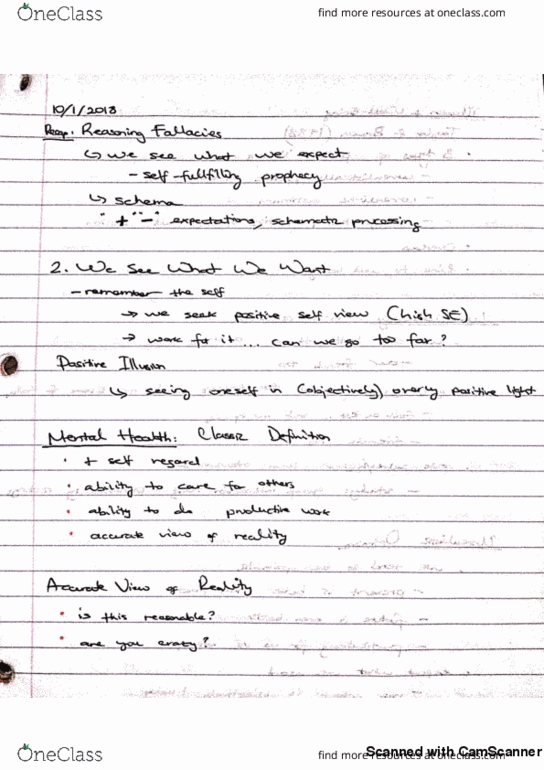 OneClass
find more resources at oneclass.com
10/1/2018
Recap: Reasoning Fallacies
↳ we see what we expect
- self-fullfilling prophecy
↳ schema
"+" "-" expectations, schematic processing
2. We See What We Want
- remember the self
→ we seek positive self view (high SE)
→ work for it... can we go too far?
Positive Illusion
↳ seeing oneself in (objectively) overly positive light
Mental Health: Classic Definition
• + self regard
• ability to care for others
• ability to do productive work
• accurate view of reality
Accurate View of Reality
• is this reasonable?
• are you crazy?
OneClass
find more resources at oneclass.com
Scanned with CamScanner